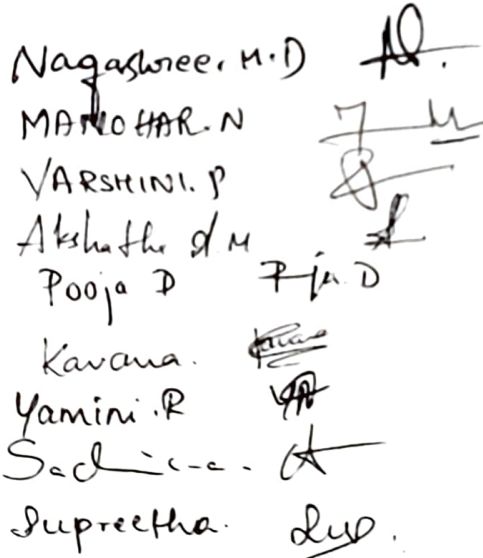 Nagashree. M.D
MANOHAR. N
VARSHINI. P
Akshatha d M
Pooja D Pja D
Kavana. Kavana
Yamini. R
Supreetha. Sup.